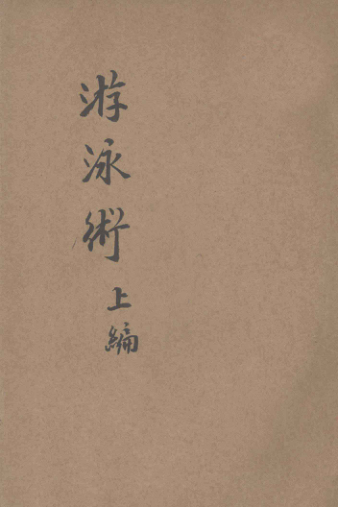 游泳術 上編